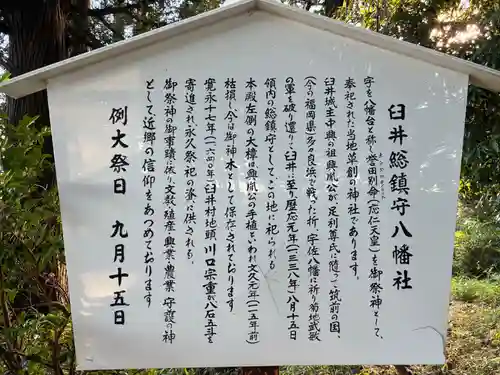 臼井総鎮守八幡社
字を八幡台と称し誉田別命(応仁天皇)を御祭神として、
奉祀された当地草創の神社であります。
臼井城主中興の祖興胤公が足利尊氏に随って筑前の国、
(今の福岡県)多々良浜で戦った折、宇佐八幡に祈り菊地武敏
の軍を破り還りて臼井に至り暦応元年(一三三八年)八月十五日
領内の総鎮守としてこの地に祀られる
本殿左側の大欅は興胤公の手植といわれ文久元年(一一五年前)
枯損し今は御神木として保存されております
寛永十七年(一六四〇年)臼井村地頭川口宗重が八石五斗を
寄進され永久祭祀の資に供される。
御祭神の御事蹟に依り文教、殖産・興業・農業・守護の神
として近郷の信仰をあつめております
例大祭日 九月十五日